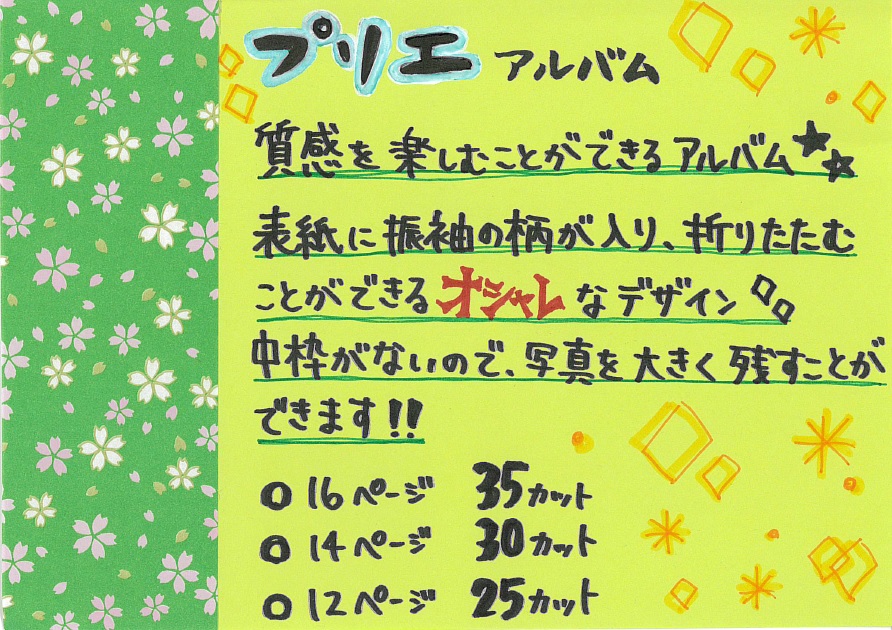 プリエ アルバム
質感を楽しむことができるアルバム
表紙に振袖の柄が入り、折りたたむ
ことができるオシャレなデザイン
中枠がないので、写真を大きく残すことが
できます!!
○ 16ページ 35カット
○ 14ページ 30カット
○ 12ページ 25カット